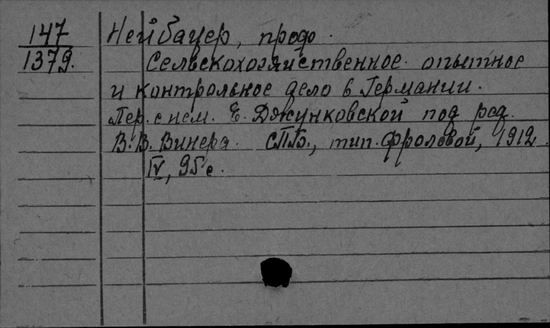 147
1379.
Нейбауер, проф.
Сельскохозяйственное опытное
и контрольное дело в Германии.
Пер. с нем. Е. Джунковской под ред.
В. В. Винера. СПБ., тип. Фроловой, 1912.
IV, 95 с.